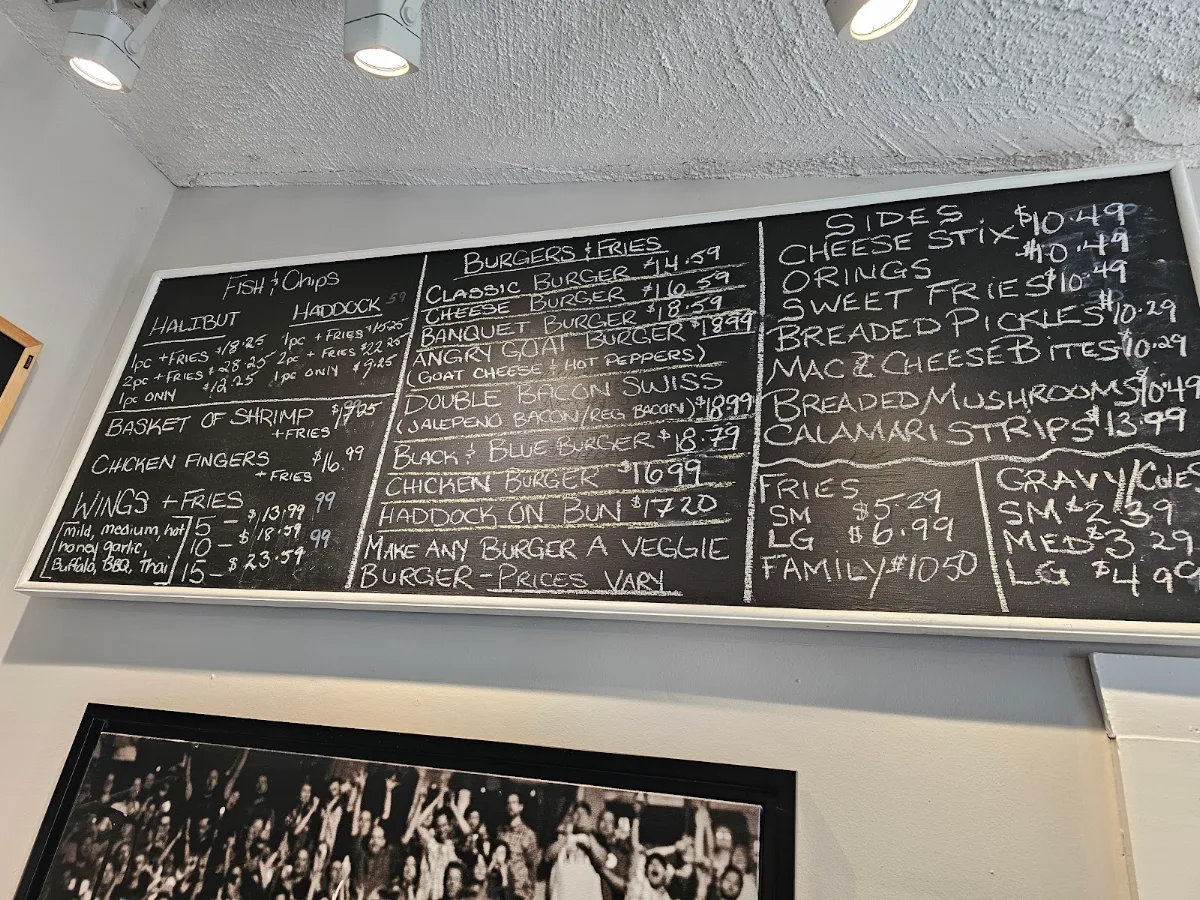 FISH & CHIPS
HALIBUT
1pc + FRIES $18.25
2pc + FRIES $28.25
1pc ONLY $12.25
HADDOCK
1pc + FRIES $15.25
2pc + FRIES $22.25
1pc ONLY $9.25
BASKET OF SHRIMP
+ FRIES
CHICKEN FINGERS $16.99
+ FRIES
WINGS + FRIES
mild, medium, hot
honey garlic,
Buffalo, BBQ, Thai
5 - $13.99
10 - $18.59
15 - $23.59
BURGERS & FRIES
CLASSIC BURGER $14.59
CHEESE BURGER $16.59
BANQUET BURGER $18.59
ANGRY GOAT BURGER $18.99
(GOAT CHEESE & HOT PEPPERS)
DOUBLE BACON SWISS
(JALEPENO BACON/REG BACON) $18.99
BLACK & BLUE BURGER $18.79
CHICKEN BURGER $16.99
HADDOCK ON BUN $17.20
MAKE ANY BURGER A VEGGIE
BURGER - PRICES VARY
SIDES
CHEESE STIX $10.49
ORINGS $10.49
SWEET FRIES $10.49
BREADED PICKLES $10.29
MAC & CHEESE BITES $10.29
BREADED MUSHROOMS $10.49
CALAMARI STRIPS $13.99
FRIES
SM $5.29
LG $6.99
FAMILY $10.50
GRAVY/
SM $2.39
MED $3.29
LG $4.99